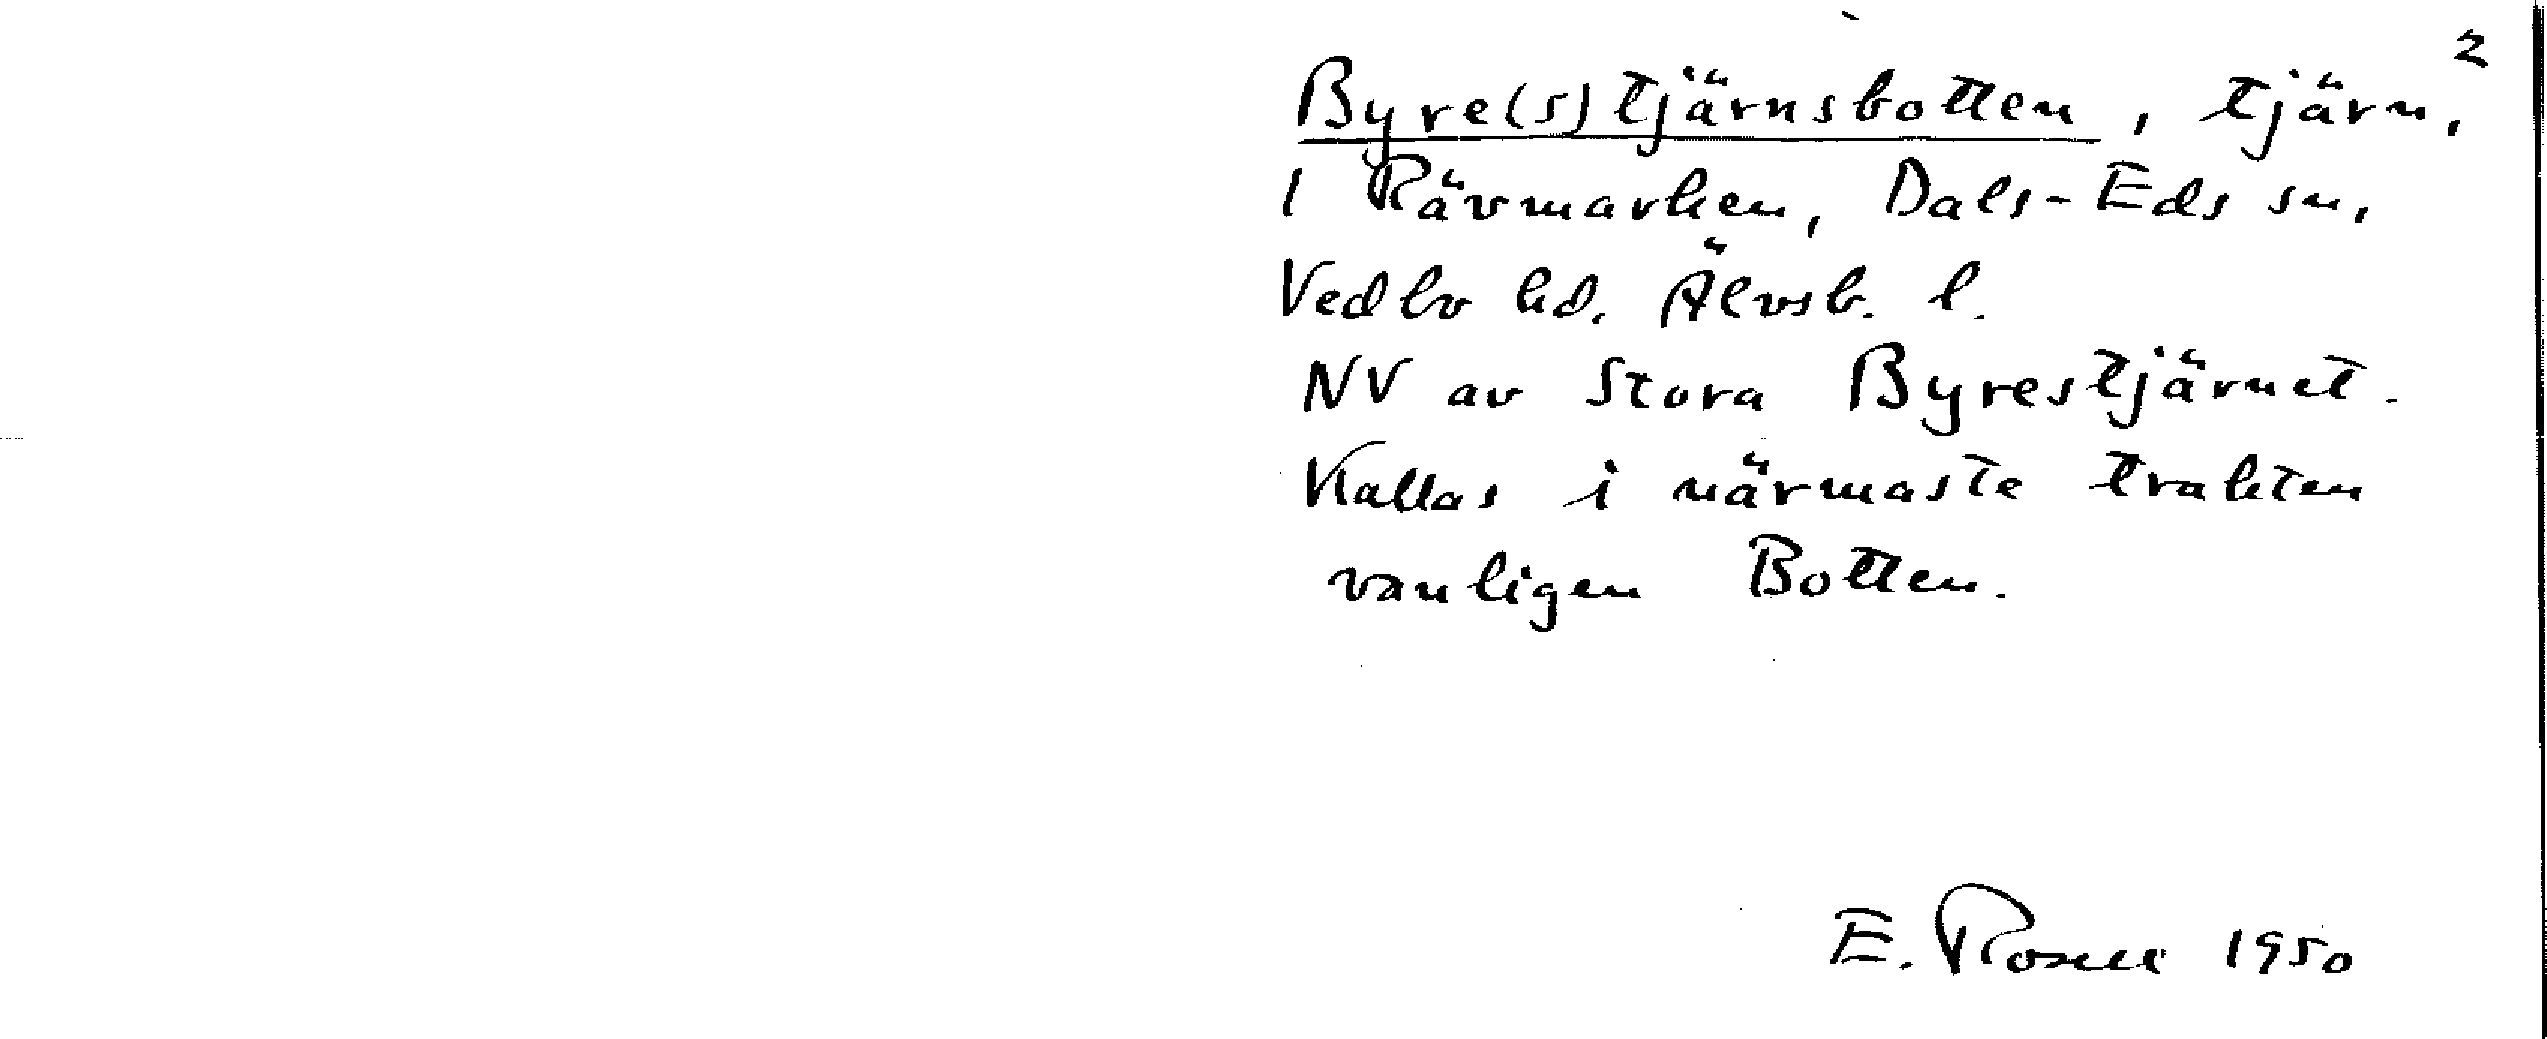 2
Byre(s)tjärnsbotten, tjärn,
i Rävmarken, Dals-Eds sn,
Vedbo hd. Älvsb. l.
NV av Stora Byrestjärnet.
Kallas i närmaste trakten
vanligen Botten.
E. Rosell 1950